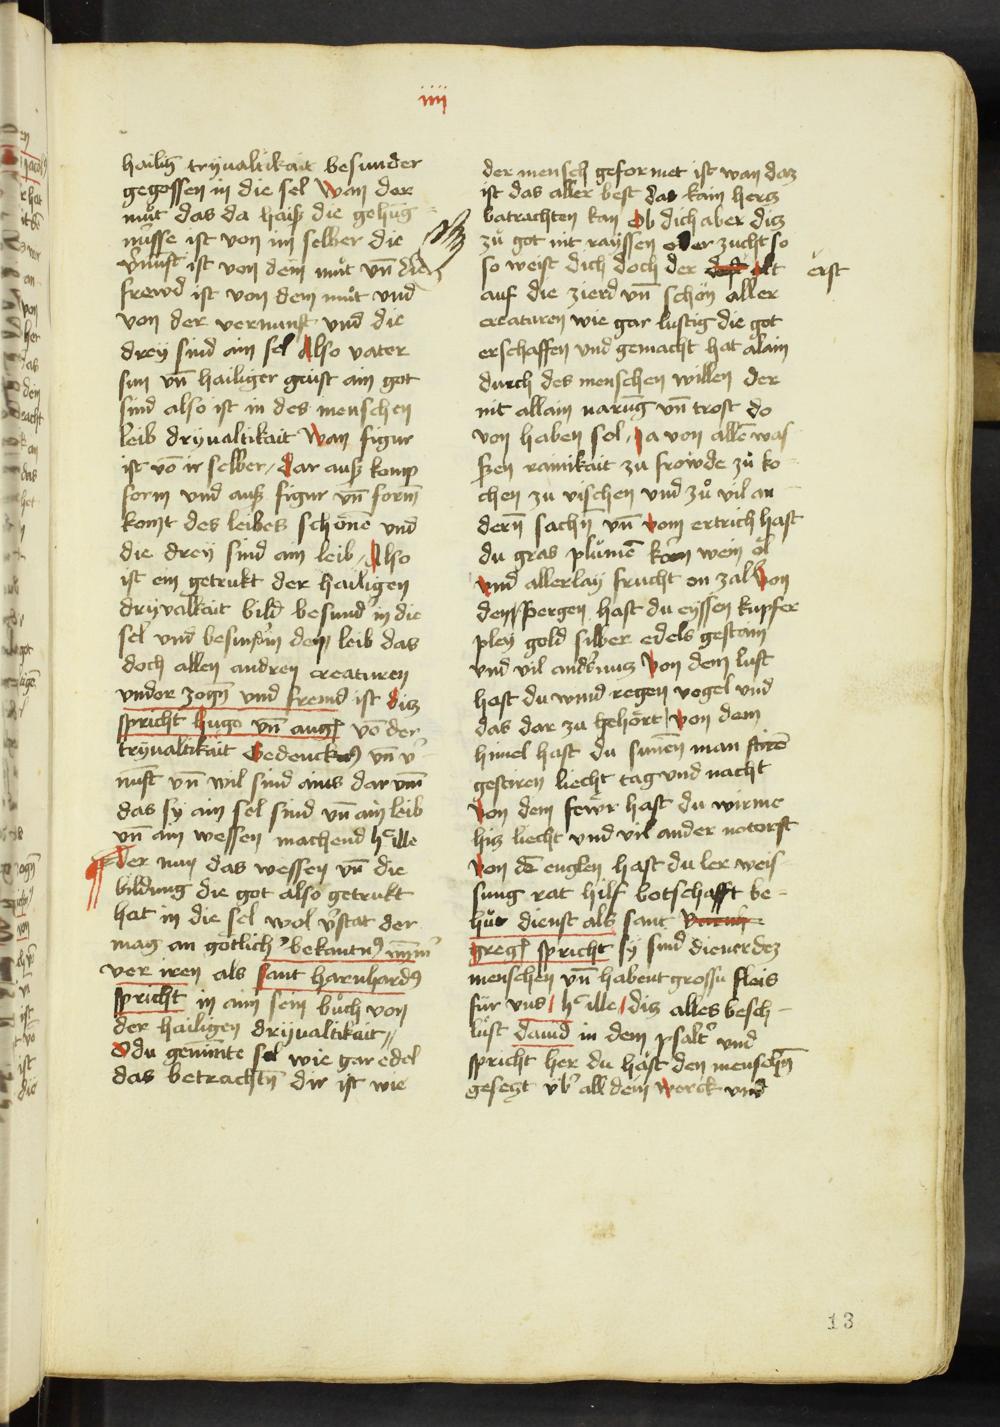 iiij
hailig̅ tryualtikait besunder
gegossen in die sel Wan der
muͦt das da haisß die gehúg
nússe ist von im selber die
v̓nunft ist von dem muͦt vn̅ die
frewd ist von dem muͦt vnd
von der vernunft vnd die
drey sind ain sel Also vater
sun vn̅ hailiger gaist ain got
sind also ist in des menschen
leib dryualtikait Wan figur
ist vo̅ ir selber / dar ausß komp
form vnd ausß figur vn̅ form̅
komt des leibes schöne̅ vnd
die drey sind ain leib / Also
ist ein getrukt der hailigen
dryvalkait bild besund̓ in die
sel vnd besund̓ in dem leib das
doch allen andren creaturen
vnder zogn̅ vnd fremd ist diz
spricht hugo vn̅ aug᷒ vo̅ der
tryualtikait Gedenck vn̅ v̓
nuft vn̅ wil sind ains dar vm̅
das sy ain sel sind vn̅ ain leib
vn̅ ain wessen machend hᶜ ille
Der nun das wessen vn̅ die
bildung die got also getrukt
hat in die sel wol v̓stat der
mag an götlich̓ bekantn᷒ nym̅
ver iren als sant harnhard᷒
spricht in aim sein buͦch von
der hailigen dryualtikait //
O du genimte sel wie gar edel
das betrachtn̅ dir ist wie
der mensch geformet ist wan daz
ist das aller best das kain hercz
batrachten kan Ob dich aber diz
zuͦ got nit rayssen oder zucht so
so weist dich doch der alt erst
auf die zierd vn̅ schön aller
creaturen wie gar lustig die got
erschaffen vnd gemacht hat alain
durch des menschen willen der
nit allain narūg vn̅ trost do
von haben sol / Ja von alle̅ was
ßen rainikait zu frowde zuͦ ko
chen zu vischen vnd zuͦ vil an
dern̅ sachn̅ vn̅ vom ertrich hast
du gras pluͦme̅ korn wein öl
vnd allerlay frucht on zal Von
dem pergen hast du eyssen kupfer
pley gold silber edels gestain
vnd vil and̓s nucz Von dem luft
hast du wind regen vogel vnd
das dar zu gehört von dem
himel hast du sunen man stire̅
gestiren liecht tag vnd nacht
Von dem fewr hast du wirme
hiz liecht vnd vil ander notorft
Von de̅ englen hast du ler weis
sung rat hilf botschafft be-
huͦt dienst als sant
greg᷒ spricht sy sind diener dez
menschen vn̅ habent grossn̅ fleis
für vns / hᶜ ille / diz alles besch-
lúst dauid in dem psalt̓ vnd
spricht her du hast den menschn̅
gesetzt v̓b̓ all dein werck vnd
13